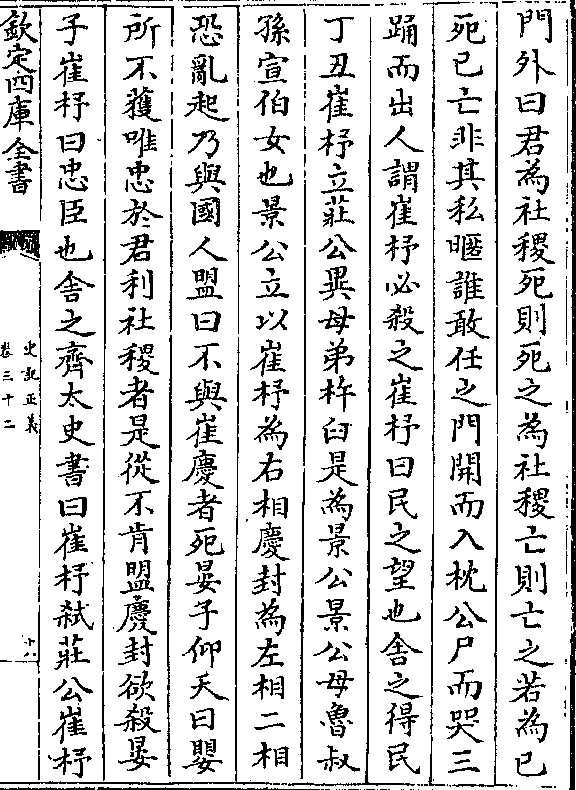 門外曰君為社稷死則死之為社稷亡則亡之若為已
死已亡非其私暱誰敢任之門開而入枕公尸而哭三
踊而出人謂崔杼必殺之崔杼曰民之望也舍之得民
丁丑崔杼立莊公異母弟杵臼是為景公景公母魯叔
孫宣伯女也景公立以崔杼為右相慶封為左相二相
恐亂起乃與國人盟曰不與崔慶者死晏子仰天曰嬰
所不獲唯忠於君利社稷者是從不肯盟慶封欲殺晏
子崔杼曰忠臣也舍之齊太史書曰崔杼弑莊公崔杼
欽定四庫全書
史記正義
卷三十二
十八